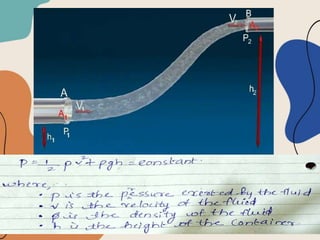 V B
P₂
h₂
A
A₁ V₁
P₁
h₁
P = 1/2 ρv²+ ρgh = constant.
where,
• p is the pressure exerted by the fluid
• v is the velocity of the fluid
• ρ is the density of the fluid
• h is the height of the container